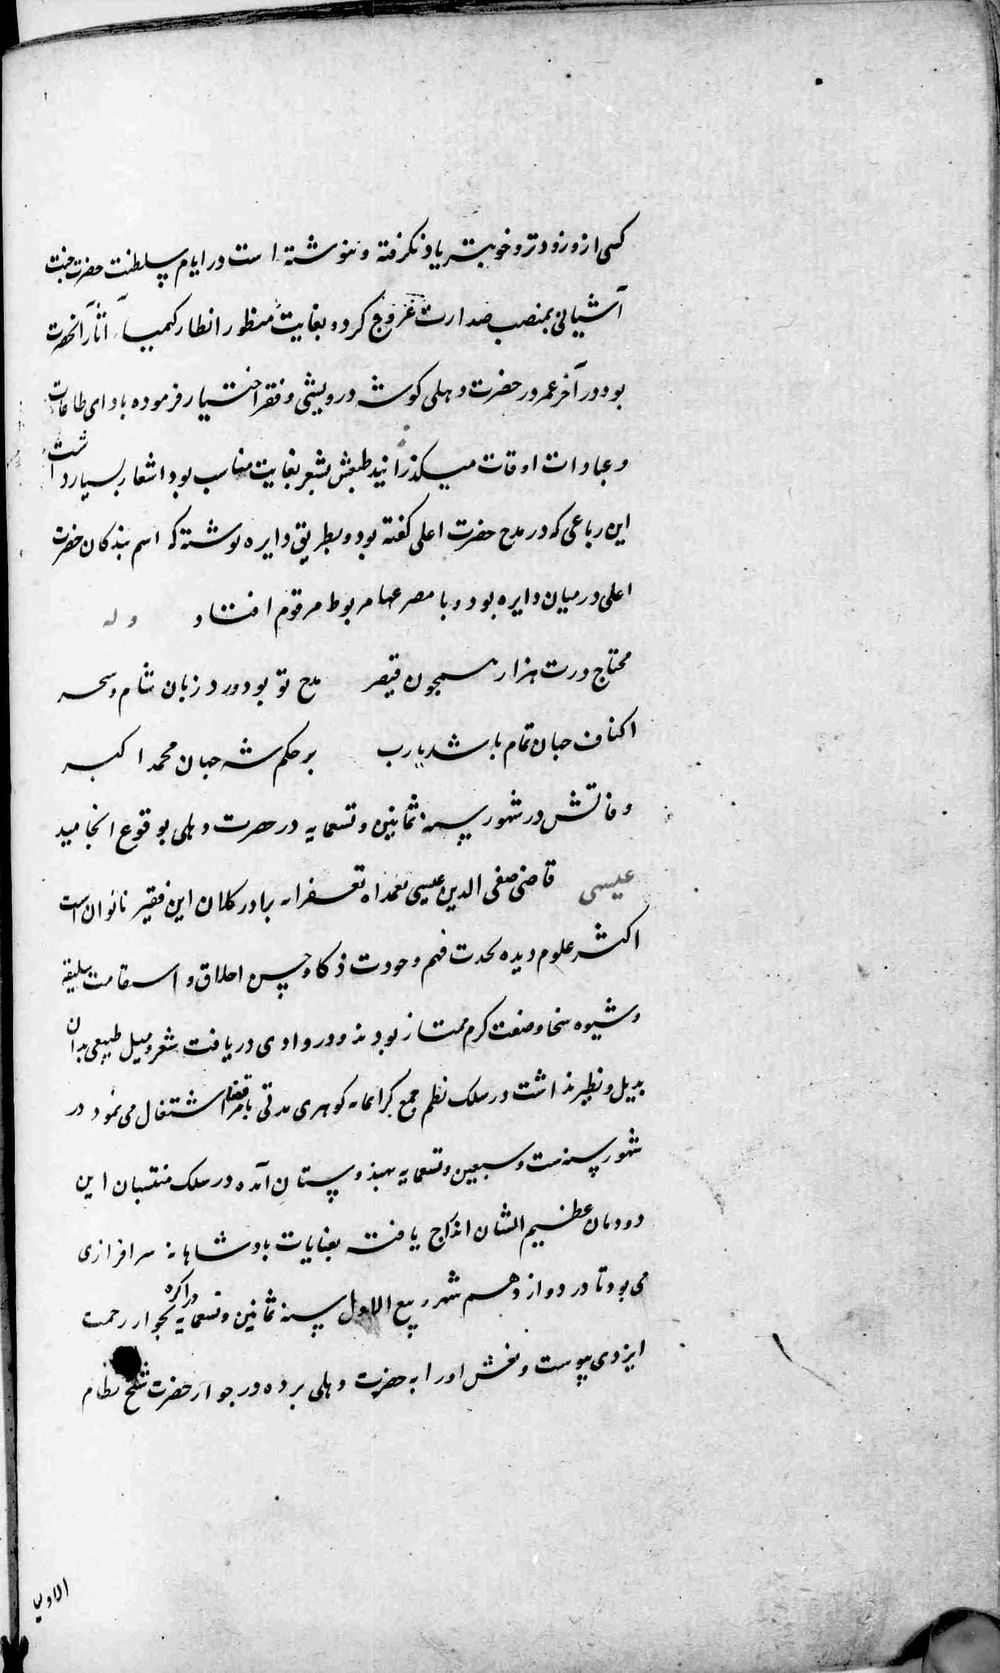 کسی ازو زودتر و خوبتر یاد نکرفته و ننوشته است در ایام سلطنت حضرت جنت
آشیانی بمنصب صدارت عروج کرده بغایت منظور انظار کیمیا آثار آنحضرت
بود در آخر عمر در حضرت دهلی کوشه درویشی و فقر اختیار فرموده بادای طاعات
و عبادات اوقات میکذرانید طبعش بشعر بغایت مناسب بود اشعار بسیار داشت
این رباعی که در مدح حضرت اعلی کفته بود و بطریق دایره نوشته که اسم بندکان حضرت
اعلی در میان دایره بود و با مصرعها مربوط مرقوم افتاد وله
محتاج درت هزار همچون قیصر مدح تو بود ورد زبان شام و سحر
اکناف جهان تمام باشد یارب بر حکم شه جهان محمد اکبر
وفاتش در شهور سنه ثمانین و تسعمایه در حضرت دهلی بوقوع انجامید
عیسی قاضی صفی الدین عیسی تغمده الله تعالی بغفرانه برادر کلان این فقیر ناتوان است
اکثر علوم دیده بحدت فهم وجودت ذکا و حسن اخلاق و استقامت سلیقه
و شیوه سخا و صفت کرم ممتاز بودند و در وادی دریافت شعر و میل طبیعی بدان
بدیل و نظیر نداشت در سلک نظم جمع کرانمایه کوهری مدتی بامر قضا اشتغال می نمود در
شهور سنه ست و سبعین و تسعمایه بهندوستان آمده در سلک منتسبان این
دودمان عظیم الشان اندراج یافته بعنایات بادشاهانه سرافرازی
می بود تا در دوازدهم شهر ربیع الاول سنه ثمانین و تسعمایه در اکره بجوار رحمت
ایزدی پیوست و نعش او را به حضرت دهلی برده در جوار حضرت شیخ نظام
الاولیا